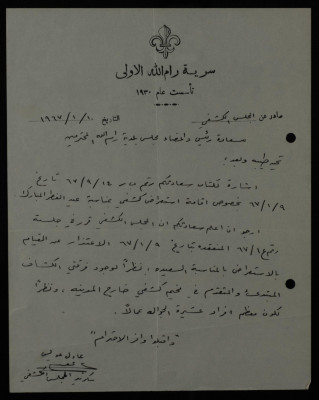 سرية رام الله الاولى
تأسست عام ١٩٣٠
صادر عن المجلس الكشفي
التاريخ ١٠ / ١ / ١٩٦٧
سعادة رئيس واعضاء مجلس بلدية رام الله المحترمين
تحية طيبة وبعد،
اشارة لكتاب سعادتكم رقم تاريخ
٦٧/١/٩ بخصوص اقامة استعراض كشفي بمناسبة عيد الفطر المبارك
ارجو ان اعلم سعادتكم ان المجلس الكشفي قرر في جلسة
رقم ٦٧/١ المنعقدة بتاريخ ٦٧/١/٩ الاعتذار عن القيام
بالاستعراض بالمناسبة السعيدة، نظراً لوجود فرقتي الكشاف
المبتدئ والمتقدم في مخيم كشفي خارج المدينة، ونظراً
لكون معظم افراد عشيرة الجوالة عمالاً.
"واقبلوا وافر الاحترام"
عادل
سكرتير المجلس الكشفي